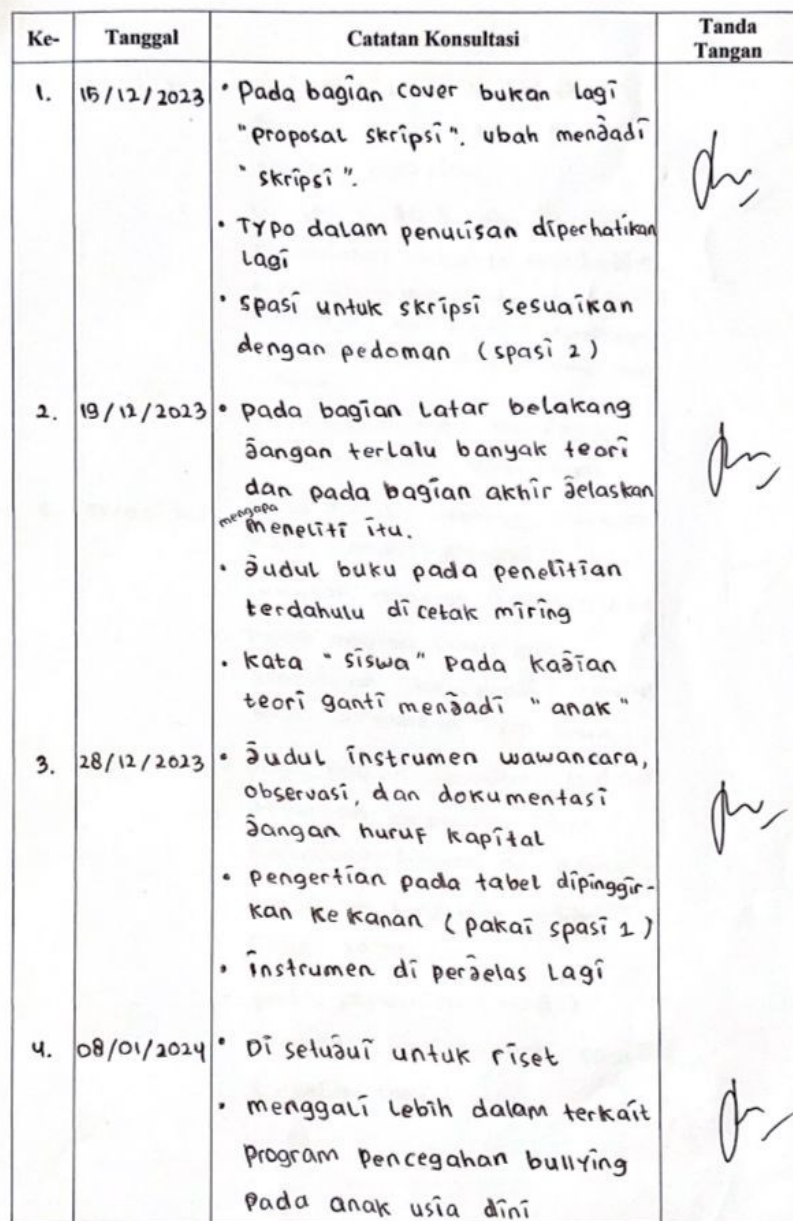 Ke- Tanggal Catatan Konsultasi Tanda Tangan
1. 15/12/2023 • Pada bagian cover bukan lagi
"proposal skripsi". ubah menjadi
"skripsi".
• Typo dalam penulisan diperhatikan
lagi
• spasi untuk skripsi sesuaikan
dengan pedoman (spasi 2)
2. 19/12/2023 • pada bagian Latar belakang
jangan terlalu banyak teori
dan pada bagian akhir jelaskan
mengapa meneliti itu.
• Judul buku pada penelitian
terdahulu di cetak miring
• kata "siswa" pada kajian
teori ganti menjadi "anak"
3. 28/12/2023 • Judul instrumen wawancara,
observasi, dan dokumentasi
jangan huruf kapital
• pengertian pada tabel dipinggir-
kan ke kanan (pakai spasi 1)
• instrumen di perjelas lagi
4. 08/01/2024 • Di setujui untuk riset
• menggali lebih dalam terkait
program pencegahan bullying
pada anak usia dini